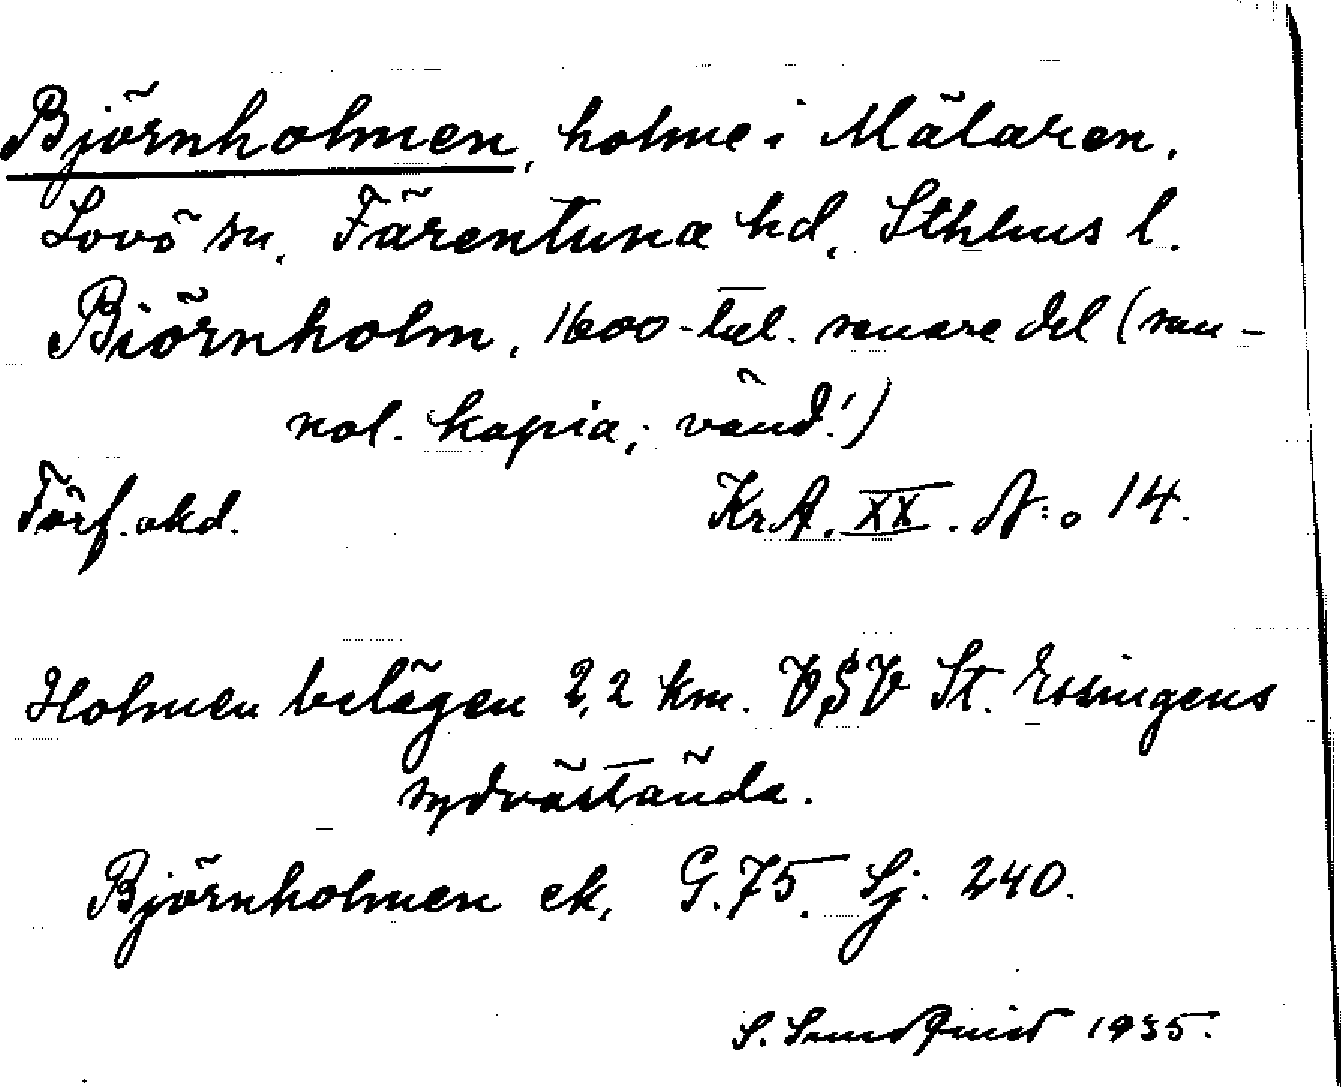 Björnholmen, holme i Mälaren.
Lovö sn, Färentuna hd, Sthlms l.
Biörnholm, 1600-tal. senare del (san-
nol. kopia; vänd!)
Förf. okd. KrA. XX. N:o 14.
Holmen belägen 2,2 km. VSV St. Essingens
sydvästända.
Björnholmen ek, G.75, Sj. 240.
S. Sundquist 1935.